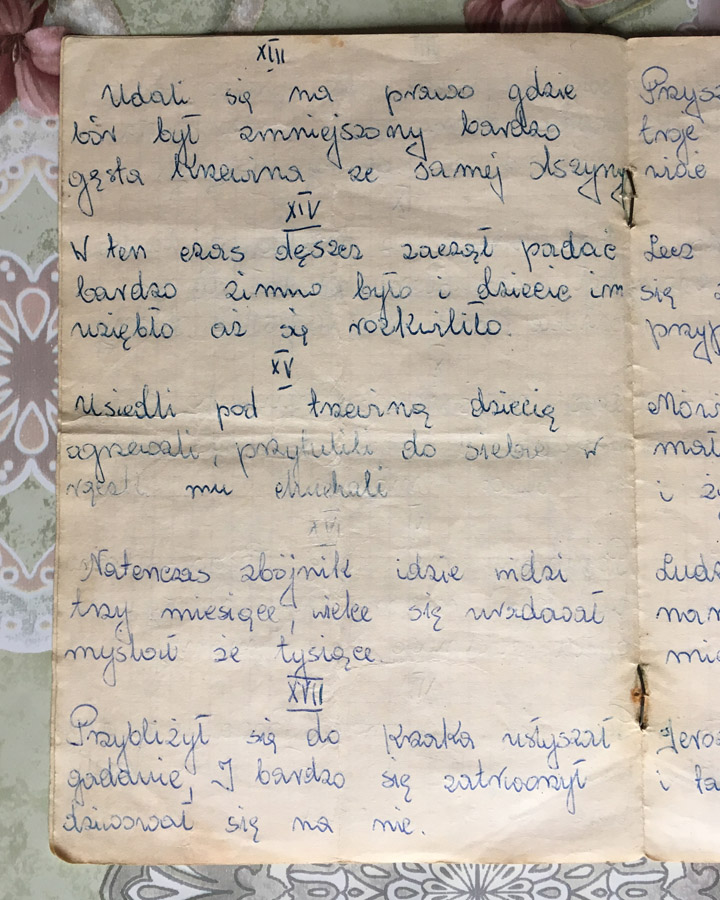 XIII
Udali się na prawo gdzie
bór był zmniejszony bardzo
gęsta krzewina ze samej olszyny
XIV
W ten czas dęszcz zaczął padać
bardzo zimno było i dziecię im
uziębło aż się rozkwiliło.
XV
Usiedli pod krzewiną dziecią
ogrzewali, przytulili do siebie w
rączki mu chuchali
XVI
Natenczas zbójnik idzie widzi
trzy miesiące, wielce się
myślał że tysiące.
XVII
Przybliżył się do krzaka usłyszał
gadanie, I bardzo się zatrwożył
dziwował się na nie.
Przysz
troje
widie
Lecz
się
przyp
Mówi
mał
i ży
Ludz
nam
mie
Jeroz
i ta